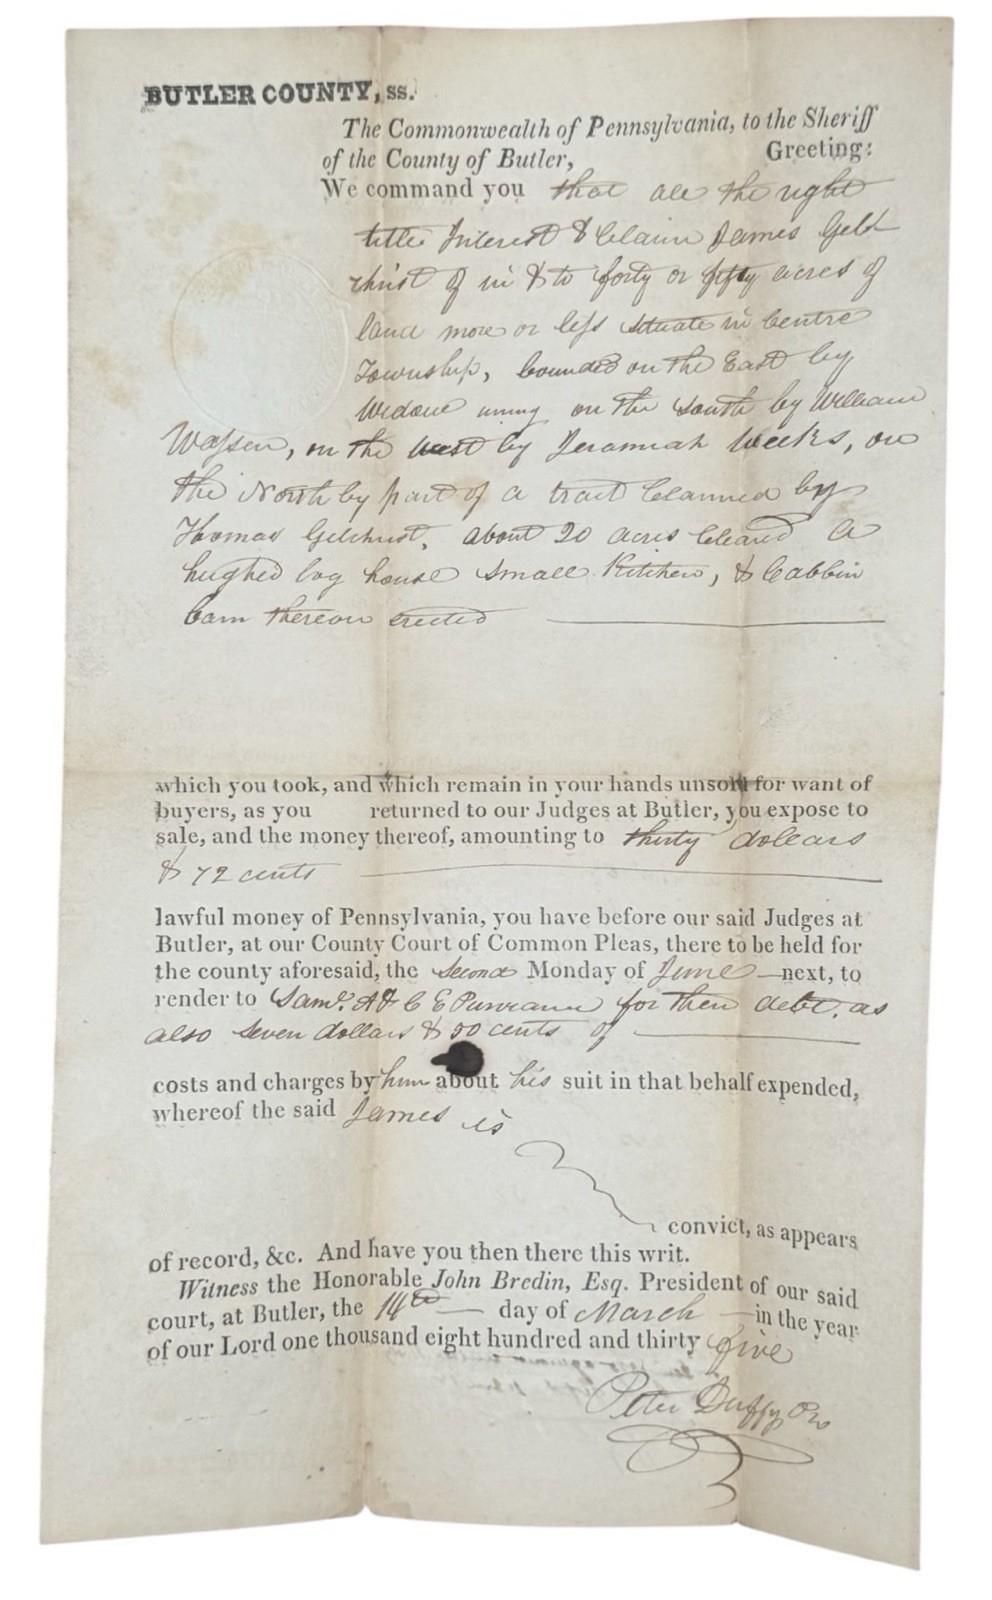 BUTLER COUNTY, ss.
The Commonwealth of Pennsylvania, to the Sheriff
of the County of Butler, Greeting:
We command you that all the right
title Interest & Claim James Gelch
rhist of in & to forty or fifty acres of
land more or less situate in Centre
Township, bounded on the East by
Widow on the South by William
Wasson, on the West by Jeramiah Weeks, on
the North by part of a tract Claimed by
Thomas Gilchrist, about 20 acres Cleared A
hughed log house small Kitchen, & Cabbin
barn thereon erected
which you took, and which remain in your hands unsold for want of
buyers, as you returned to our Judges at Butler, you expose to
sale, and the money thereof, amounting to thirty dollars
& 72 cents
lawful money of Pennsylvania, you have before our said Judges at
Butler, at our County Court of Common Pleas, there to be held for
the county aforesaid, the second Monday of June next, to
render to Saml. A & C E Purviance for their debt, as
also seven dollars & 50 cents of
costs and charges by him about his suit in that behalf expended,
whereof the said James is
convict, as appears
of record, &c. And have you then there this writ.
Witness the Honorable John Bredin, Esq. President of our said
court, at Butler, the 14th day of March in the year
of our Lord one thousand eight hundred and thirty five
Peter Duffy Pro